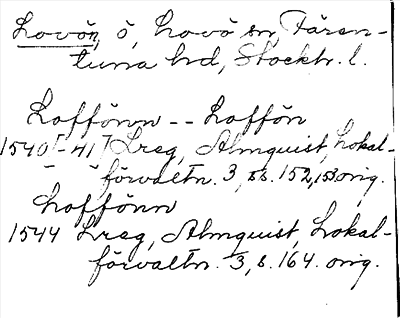 Lovön, ö, Lovö sn, Fären-
tuna hd, Stockh. l.
Loffönn -- Loffön
1540[-41] Lreg, Almquist, Lokal-
förvaltn. 3, s. 152, 153 orig.
Loffönn
1544 Lreg, Almquist, Lokal-
förvaltn. 3, s. 164. orig.